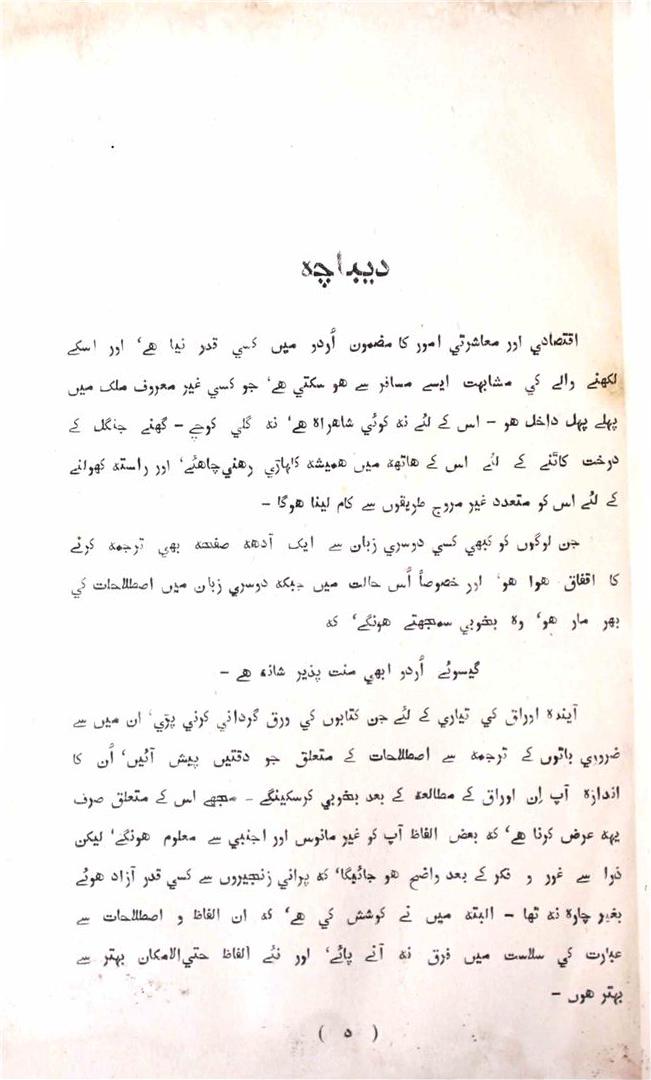 دیباچہ
اقتصادي اور معاشرتي امور کا مضمون اُردو میں کسي قدر نیا ھے‘ اور اسکے
لکھنے والے کي مشابہت ایسے مسافر سے ھو سکتي ھے‘ جو کسي غیر معروف ملک میں
پہلے پہل داخل ھو – اس کے لئے نہ کوئي شاھراہ ھے‘ نہ گلي کوچے – گھنے جنگل کے
درخت کاٹنے کے لئے اس کے ھاتھہ میں ھمیشہ کلہاڑي رھني چاھئے‘ اور راستہ کھولنے
کے لئے اس کو متعدد غیر مروج طریقوں سے کام لینا ھوگا –
جن لوگوں کو کبھي کسي دوسري زبان سے ایک آدھہ صفحہ بھي ترجمہ کرنے
کا اتفاق ھوا ھو‘ اور خصوصاً اُس حالت میں جبکہ دوسري زبان میں اصطلاحات کي
بھر مار ھو‘ وہ بخوبي سمجھتے ھونگے‘ کہ
گیسوئے اُردو ابھي منت پذیر شانہ ھے –
آیندہ اوراق کي تیاري کے لئے جن کتابوں کي ورق گرداني کرني پڑي‘ ان میں سے
ضروري باتوں کے ترجمہ سے اصطلاحات کے متعلق جو دقتیں پیش آئیں‘ اُن کا
اندازہ آپ اِن اوراق کے مطالعہ کے بعد بخوبي کرسکینگے – مجھے اس کے متعلق صرف
یہہ عرض کرنا ھے‘ کہ بعض الفاظ آپ کو غیر مانوس اور اجنبي سے معلوم ھونگے‘ لیکن
ذرا سے غور و فکر کے بعد واضح ھو جائیگا‘ کہ پراني زنجیروں سے کسي قدر آزاد ھوئے
بغیر چارہ نہ تھا – البتہ میں نے کوشش کي ھے‘ کہ ان الفاظ و اصطلاحات سے
عبارت کي سلاست میں فرق نہ آنے پائے‘ اور نئے الفاظ حتي الامکان بہتر سے
بہتر ھوں –
( ۵ )